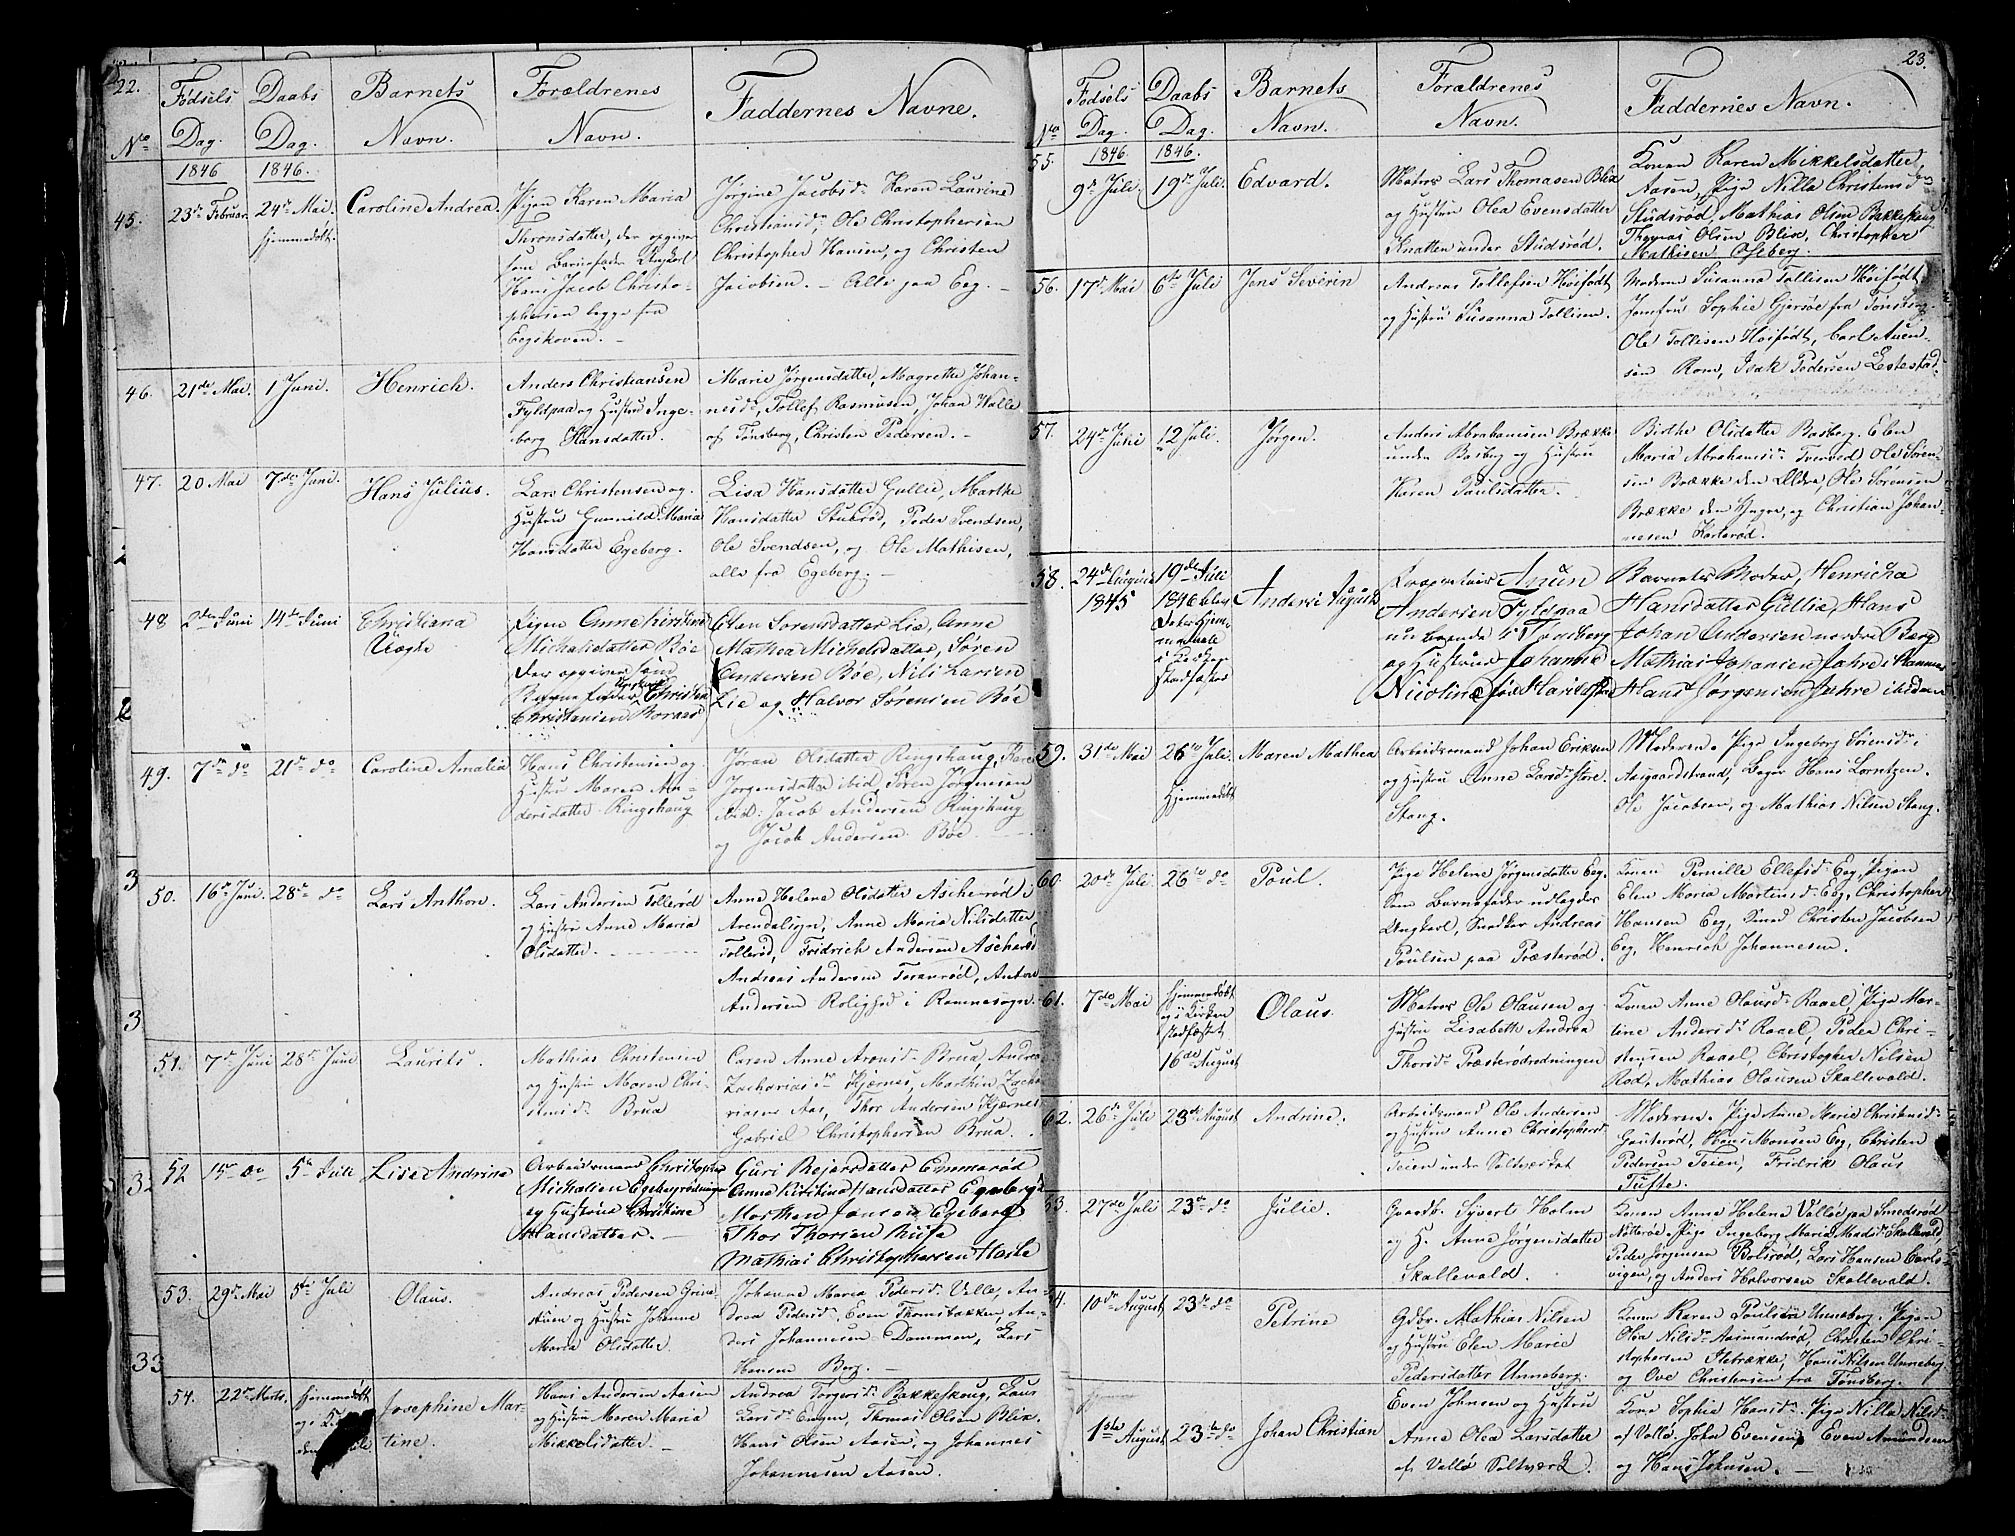 22.
Fødsels Daabs Barnets Forældrenes Faddernes Navne.
No Dag. Dag. Navn. Navn.
1846 1846.
45. 23de Februar. 24de Mai. hjemmedøbt. Caroline Andrea.
Pigen Karen Maria
Thronsdatter, der opgiver
som Barnefader Ungkarl
Hans Jacob Christo-
phersen begge fra
Eegskoven. -
Jørgine Jacobsdr. Karen Laurine
Christiansdr, Ole Christophersen
Christopher Hansen, og Christen
Jacobsen. - Alle paa Eeg. -
46. 21de Mai. 1 Juni. Henrich.
Anders Christiansen
Fyldpaa og Hustru Inge-
borg Hansdatter.
Marie Jørgensdatter, Magrethe Johan-
nesdr, Tollef Rasmusen, Johan Walle
af Tønsberg, Christen Pedersen. -
47. 20 Mai 7de Juni. Hans Julius.
Lars Christensen og
Hustru Gunnild Maria
Hansdatter Egeberg.
Lisa Hansdatter Gullie, Marthe
Hansdatter Stubrød, Peder Svendsen,
Ole Svendsen, og Ole Mathisen,
alle fra Egeberg. -
48 2den Juni 14de Juni Christiana
Pigen Anne Kirstine
Michalsdatter Bøe
der opgiver som
Barnefader Ungkarl Christen
Christansen Boraas
Elen Sørensdatter Lie, Anne
Mathea Michelsdatter, Søren
Andersen Bøe, Nils Larsen
Lie og Halvor Sørensen Bøe
49. 7de do 21de do Caroline Amalia
Hans Christensen og
Hustru Maren An-
dersdatter Ringshaug
Jøran Olsdatter Ringshaug, Kari
Jørgensdatter ibid, Søren Jørgensen
ibid: Jacob Andersen Ringshaug
og Jacob Andersen Bøe
50. 16de Juni. 28de do Lars Anthon.
Lars Andersen Tollerød
og Hustru Anne Maria
Olsdatter.
Anne Helene Olsdatter Ascherød i
Arendalsogn, Anne Maria Nilsdatter
Tollerød, Fridrich Andersen Ascherød
Andreas Andersen Toranrød, Anton
Andersen Rolighed i Ramnesogn.
51. 7de Juni 28de Juni Laurits.
Mathias Christensen
og Hustru Maren Chri-
stensdr Brua
Caren Anne Aronsdr Brua, Andrea
Zachariasdr Kjærnes, Marthin Zacha-
riasen Aas, Thor Andersen Kjærnes
Gabriel Christophersen Brua.
52 15de do 5te Juli Lise Andrina
Arbeidsmand Christopher
Michalsen Egebergrødningen
og Hustrue Christine
Hansdatter. -
Guri Rejersdatter Emmerød
Anne Kirstina Hansdatter Egeberg
Morthen Jansen Egeberg
Thor Thorsen Rusa
Mathias Christophersen Hasle
53. 29de Mai 5te Juli Olaus.
Andreas Pedersen Grine-
stuen og Hustru Johanne
Maria Olsdatter
Johanne Maria Pedersdr Velle, An-
drea Pedersdr, Even Thomsbakken, An-
ders Johannesen Dammen, Lars
Hansen Berg. -
54. 22de Marts. hjemmedøbt
og i
den
Josephine Mar-
tine.
Hans Andersen Aasen
og Hustru Maren Maria
Mikkelsdatter. -
Andrea Torgersdr Bakkeskoug, Laus
Larsdr Engen, Thomas Olsen Blix,
Hans Olsen Aasen, og Johannes
Johannesen Aasen.
23.
Fødsels Daabs Barnets Forældrenes Faddernes Navn.
No Dag. Dag. Navn. Navn.
1846. 1846.
55. 9de Juli. 19de Juli. Edvard.
Matros Lars Thomasen Blix
og Hustru Olea Evensdatter
Knatten under Studsrød.
Konen Karen Mikkelsdatter,
Aasen, Pige Nilla Christensdr
Studsrød, Mathias Olsen Bakkeskoug
Thomas Olsen Blix, Christopher
Mathisen Ofsberg.
56. 17de Mai 6te Juli Jens Severin
Andreas Tollefsen Høifødt
og Hustru Susanna Tollisen.
Moderen Susanna Tollisen Høifødt
Jomfru Sophie Gjersøe fra Tønsberg
Ole Tollisen Høifødt, Carl Auen-
sen Rom, Isak Pedersen Lestestad.
57. 24de Juni 12 Juli Jørgen.
Anders Abrahamsen Brække
under Basberg og Hustru
Karen Paulsdatter.
Birthe Olsdatter Basberg, Elen
Maria Abrahamsdr Tverved Ole Søren-
sen Brække den Ældre, Ole Sørensen
Brække den Yngre, og Christian Johan-
nesen Karlsrød.
58. 24de August 1845 19de Juli 1846 Anders August
Anun
Andersen Fyldpaa
nu boende i Tønsberg
og Hustrue Johanne
Nicoline
Barnets Moder, Henricha
Hansdatter Gullie, Hans
Johan Andersen nordre Berg
Mathias Johansen Jahre i Ramnes
Hans Jørgensen Jahre ibidem
59. 31de Mai 26de Juli hjemmedøbt Maren Mathea
Arbeidsmand Johan Eriksen
og Hustru Anne Larsdr Store
Stang.
Moderen. Pige Ingeborg Sørensdr i
Aasgaardstrand, Bager Hans Lorntzen.
Ole Jacobsen, og Mathias Nilsen Stang.
60. 20de Juli 26de do Poul.
Pige Helene Jørgensdatter Eeg.
Som Barnefader udlagdes
Ungkarl, Snedker Andreas
Poulsen paa Præsterød.
Konen Pernille Ellefsdr Eeg, Pigen
Elen Maria Martinsdr Eeg, Christopher
Hansen Eeg, Smed Christen Jacobsen
Eeg, Henrich Johannesen.
61. 7de Mai hjemmedøbt
og i Kirken
stadfæstet
16de August
Olaus
Matros Ole Olausen og
Hustru Lisabeth Andrea
Thorsdr Præsterødrødningen
Konen Anne Olausdr Raael, Pige Mar-
tine Andersdr Raael, Peder Chri-
stensen Raael, Christopher Nilsen
Rød, Mathias Olausen Skallevald.
62. 26de Juli 23de August Andrine.
Arbeidsmand Ole Andersen
og Hustru Anne Christophersdr
Teien under Saltværket
Moderen. Pige Anne Marie Christensdr
Gauterød, Hans Monsen Eeg, Christen
Pedersen Teien, Fridrik Olaus
Tufte.
63. 27de Juli 23de do Julie.
Gaardbr. Syvert Holm
og H. Anne Jørgensdatter
Skallevald.
Konen Anne Helene Valløe paa Smederød
Nøtterøe, Pige Ingeborg Maria Madsdr Skallevald,
Peder Jørgensen Bolsrød, Lars Hansen Carls-
vigen, og Anders Halvorsen Skallevald.
4. 10de August 23de do Petrine
Gdbr. Mathias Nilsen
og Hustru Elen Marie
Pedersdatter Unneberg.
Konen Karen Poulsdr Unneberg. Pigen
Olea Nilsdr Aasmandrød, Christen Chri-
stophersen Stebrække, Hans Nilsen Unneberg
og Ove Christensen fra Tønsberg.
1ste August 23de do Johan Christian
Even Johnsen og Hustru
Anne Olea Larsdatter
af Vallø Saltværk.
Kone Sophia Hansdr. Pige Nilla Nilsdr
af Vallø. John Evensen, Even Amundsen
og Hans Johnsen. -